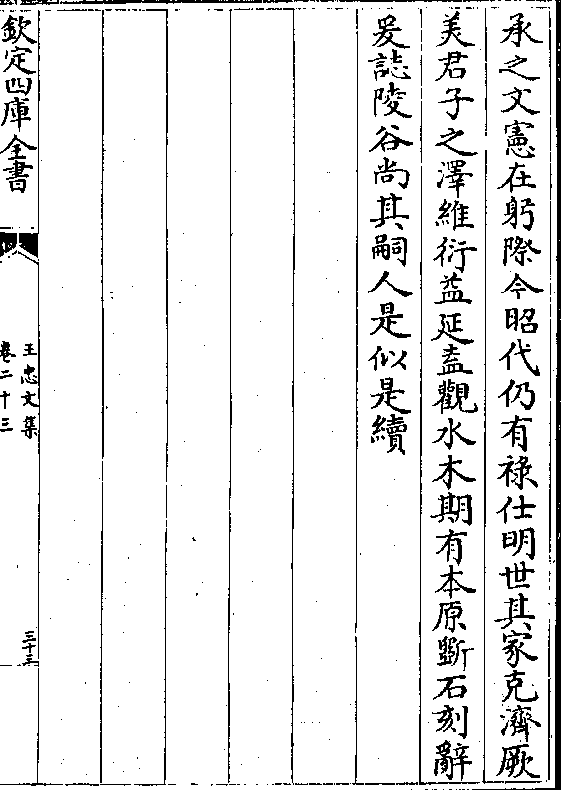 承之文憲在躬際今昭代仍有祿仕明世其家克濟厥
美君子之澤維衍益延盍觀水木期有本原斲石刻辭
爰誌陵谷尚其嗣人是似是續
欽定四庫全書
王忠文集
卷二十三
三十三